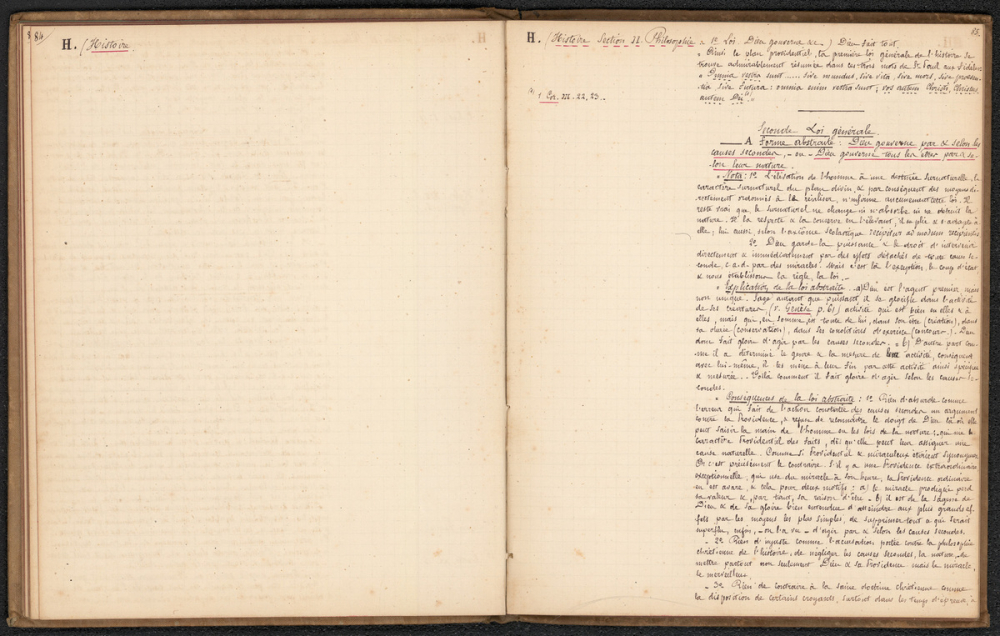 84
H. (Histoire
85.
H. (Histoire Section II. Philosophie . 1re Loi Dieu gouverne &c ) Dieu fait tout.
" Ainsi le plan providentiel, la première loi générale de l'histoire se
trouve admirablement résumée dans ces trois mots de St Paul aux fidèles
" Omnia vestra sunt ...... sive mundus, sive vita, sive mors, sive præsen-
tia sive futura : omnia enim vestra sunt; vos autem Christi, Christus
autem Dei."
(1) 1 Cor. III. 22, 23..
Seconde Loi générale.
A Forme abstraite : Dieu gouverne par & selon les
causes secondes, - ou - Dieu gouverne tous les êtres par & se-
lon leur nature.
" Nota : 1° L'élévation de l'homme à une destinée surnaturelle, le
caractère surnaturel du plan divin, & par conséquent des moyens di-
rectement ordonnés à le réaliser, n'infirme aucunement cette loi. Il
reste vrai que le surnaturel ne change ni n'absorbe ni ne détruit la
nature. Il la respecte & la conserve en l'élevant, il se plie & s'adapte à
elle; lui aussi, selon l'axiôme scholastique recipitur ad modum recipientis
2° Dieu garde la puissance & le droit d'intervenir
directement & immédiatement par des effets détachés de toute cause se-
conde, c.a.d. par des miracles. Mais c'est là l'exception, le coup d'état
& nous établissons la règle, la loi. -
" Explication de la loi abstraite . a) Dieu est l'agent premier, mais
non unique. Sage autant que puissant, il se glorifie dans l'activité
de ses créatures (v. Genèse p. 6) activité qui est bien en elles & à
elles, mais qui, en somme, est toute de lui, dans son être (création), dans
sa durée (conservation), dans les conditions d'exercice (concours). Dieu
donc fait gloire d'agir par les causes secondes. - b) D'autre part com-
me il a déterminé le genre & la mesure de leur activité, conséquent
avec lui-même, il les mène à leur fin par cette activité ainsi spécifiée
& mesurée. Voilà comment il fait gloire d'agir selon les causes se-
condes.
" Conséquences de la loi abstraite : 1° Rien d'absurde comme
l'erreur qui fait de l'action constatée des causes secondes un argument
contre la Providence, & refuse de reconnaître le doigt de Dieu là où elle
peut saisir la main de l'homme ou les lois de la nature; qui nie le
caractère Providentiel des faits, dès qu'elle peut leur assigner une
cause naturelle. Comme si Providentiel & miraculeux étaient synonymes
Or c'est précisément le contraire. S'il y a une Providence extraordinaire
exceptionnelle, qui use du miracle à son heure, la Providence ordinaire
en est avare, & cela pour deux motifs : a) le miracle prodigué perd
sa valeur &, par tant, sa raison d'être - b) il est de la sagesse de
Dieu & de sa gloire bien entendue d'atteindre aux plus grands ef-
fets par les moyens les plus simples, de supprimer tout ce qui serait
superflu, enfin, - on l'a vu - d'agir par & selon les causes secondes.
- 2° Rien d'injuste comme l'accusation portée contre la philosophie
chrétienne de l'histoire, de négliger les causes secondes, la nature, de
mettre partout non seulement Dieu & sa Providence mais le miracle,
le merveilleux.
- 3° Rien de contraire à la saine doctrine chrétienne comme
la disposition de certains croyants, surtout dans les temps d'épreuve, à